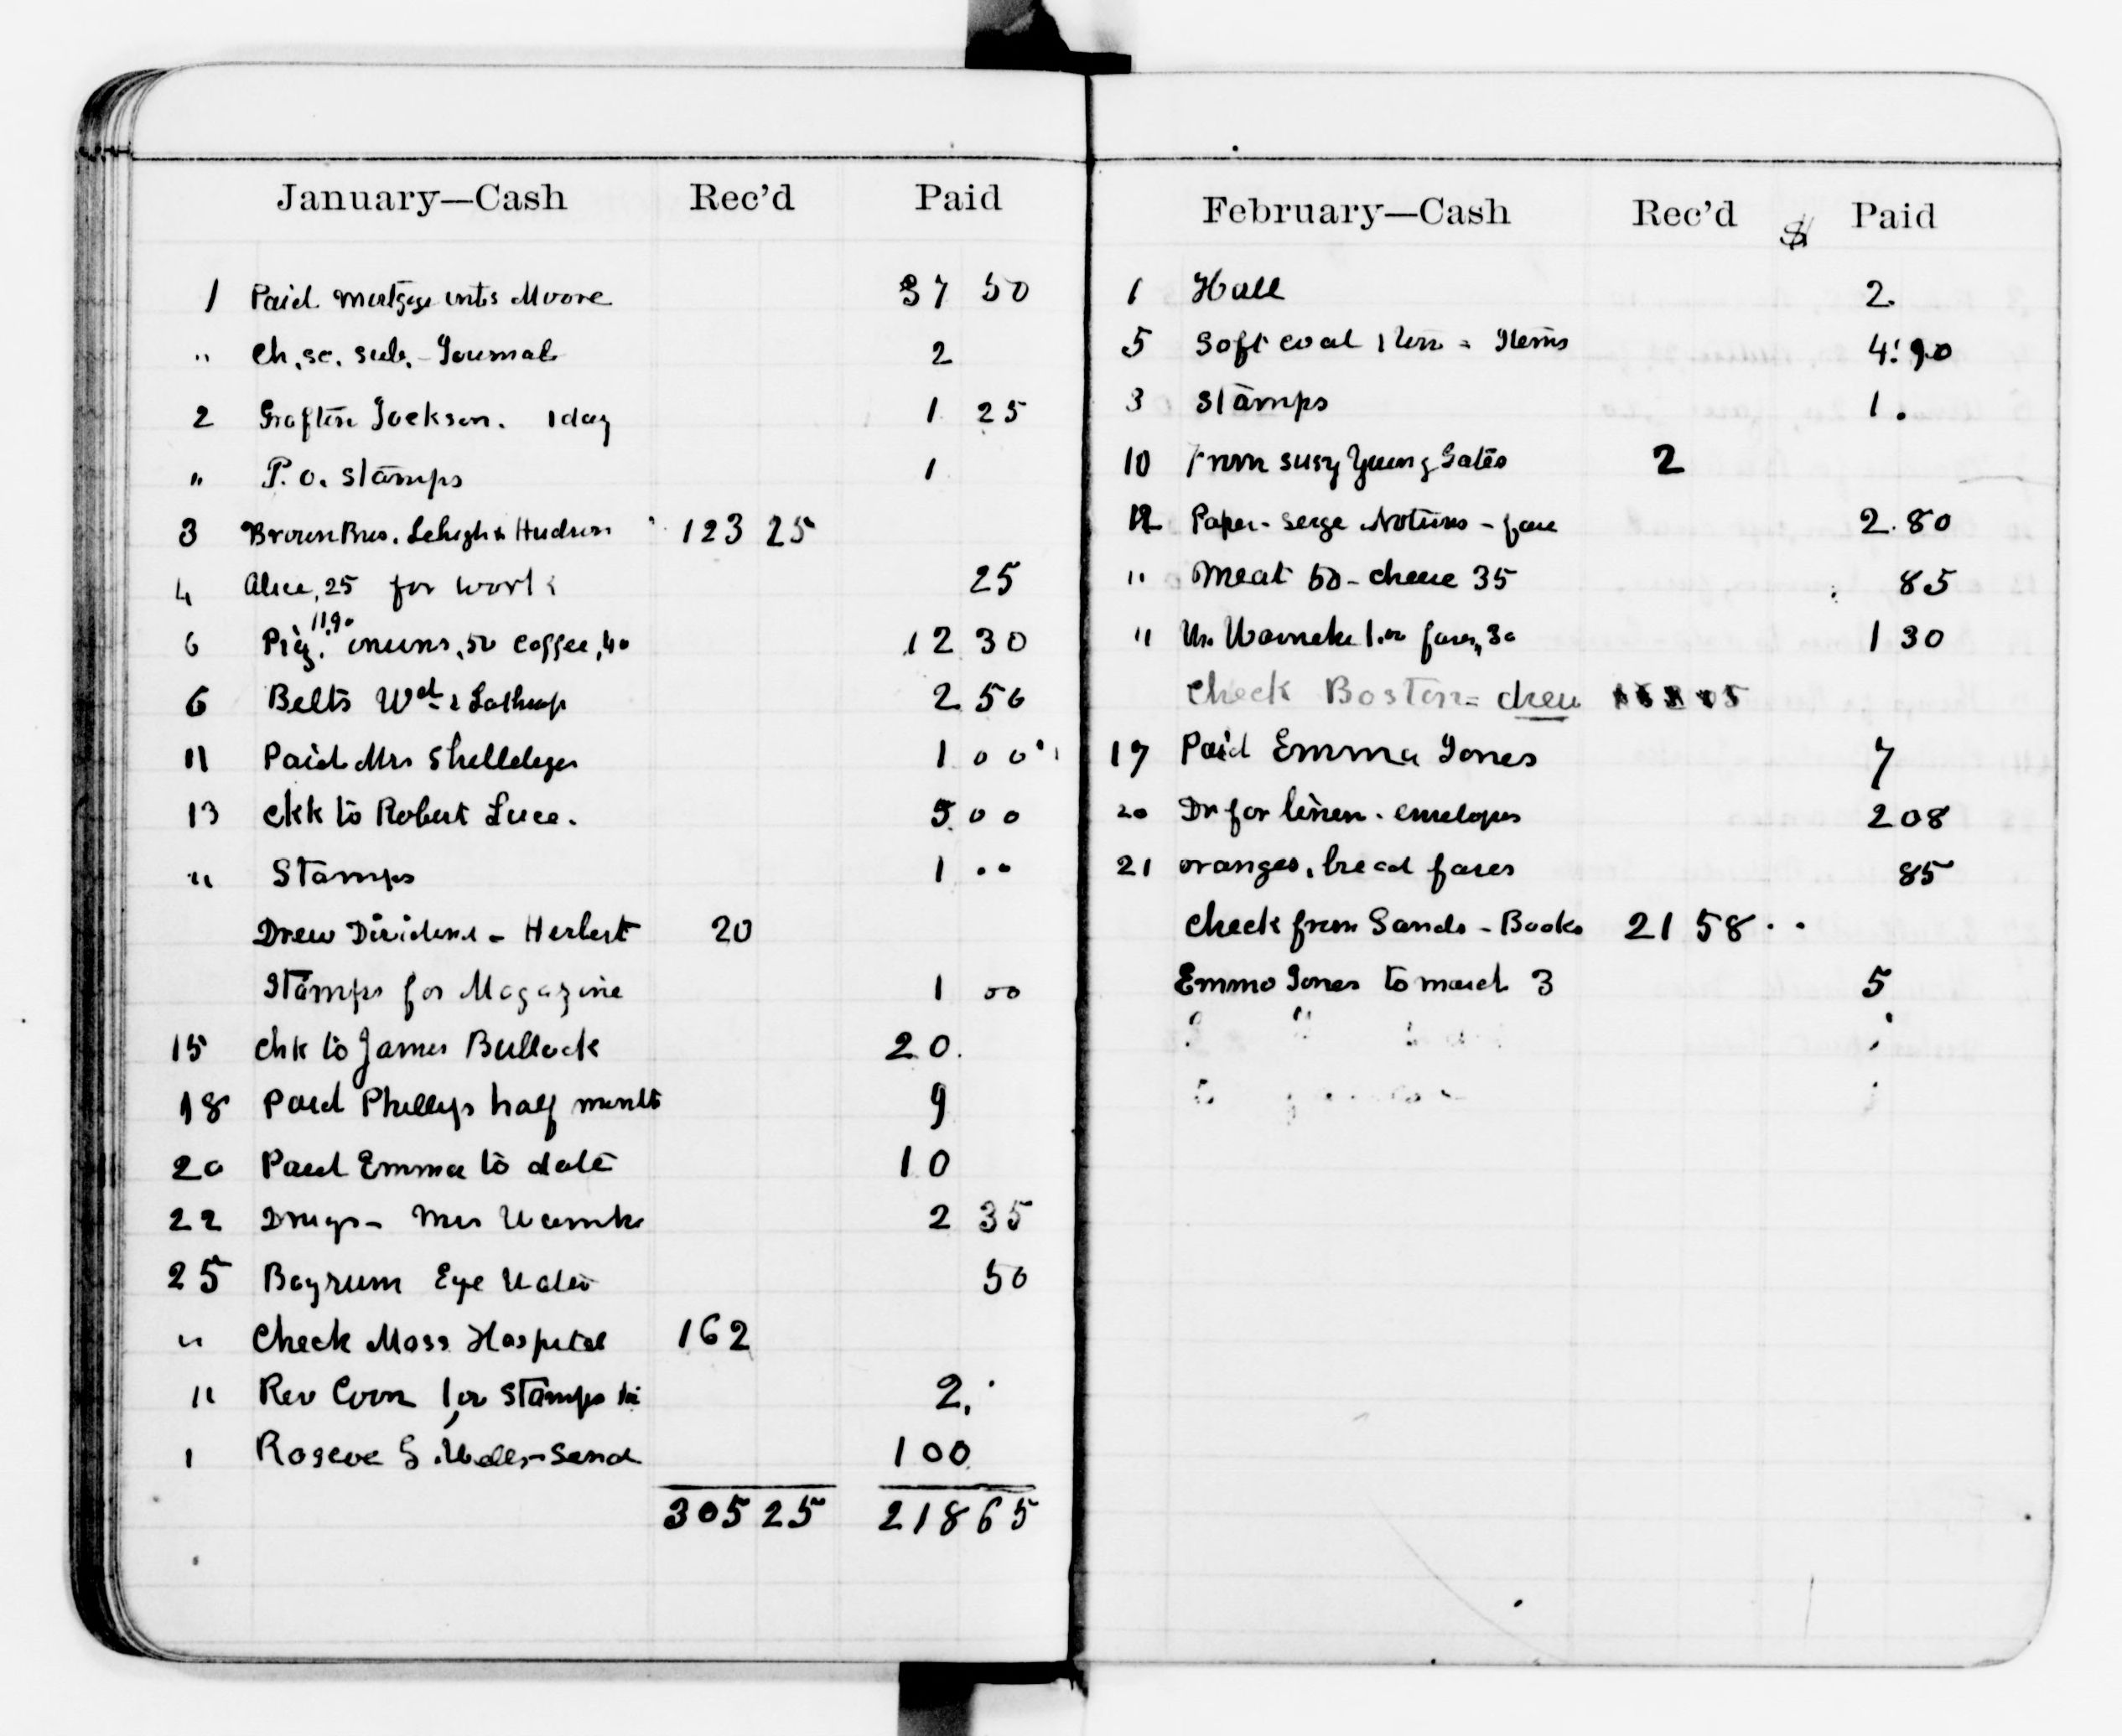 January—Cash Rec'd Paid
1 Paid mortgage ints Moore 37 50
" Ch. sc. sub. - Journal 2
2 Grafton Jackson. 1 day 1 25
" P.O. stamps 1
3 Brown Bros. Lehigh & Hudson 123 25
4 Alice, 25 for work 25
11 90
6 Pig. onions, 50 coffee, 40 12 30
6 Belts Wd & Lothrop 2 50
11 Paid Mrs 1 00
13 chk to Robert Luce. 5 00
" Stamps 1 00
Drew Dividend - Herbert 20
Stamps for Magazine 1 00
15 chk to James Bullock 20.
18 Paid Phillips half month 9
20 Paid Emma to date 10
22 Drugs - Mrs 2 35
25 Bayrum Eye Water 50
" Check Mass Hospital 162
" Rev Coon 1,00 stamps 2.
1 Roscoe G. Wells - Send 100
305 25 218 65
February—Cash Rec'd $ Paid
1 Hall 2.
5 Soft coal 1 ton = Items 4.90
3 Stamps 1.
10 From Susy Young Gates 2
12 Paper - serge Notions - fare 2.80
" Meat 50 - cheese 35 85
" Warneke 1.00 fares, 30 1 30
Check Boston =
17 Paid Emma Jones 7
20 Dr for linen. envelopes 2 08
21 oranges, bread fares 85
Check from Sands - Books 21 58
Emma Jones to march 3 5